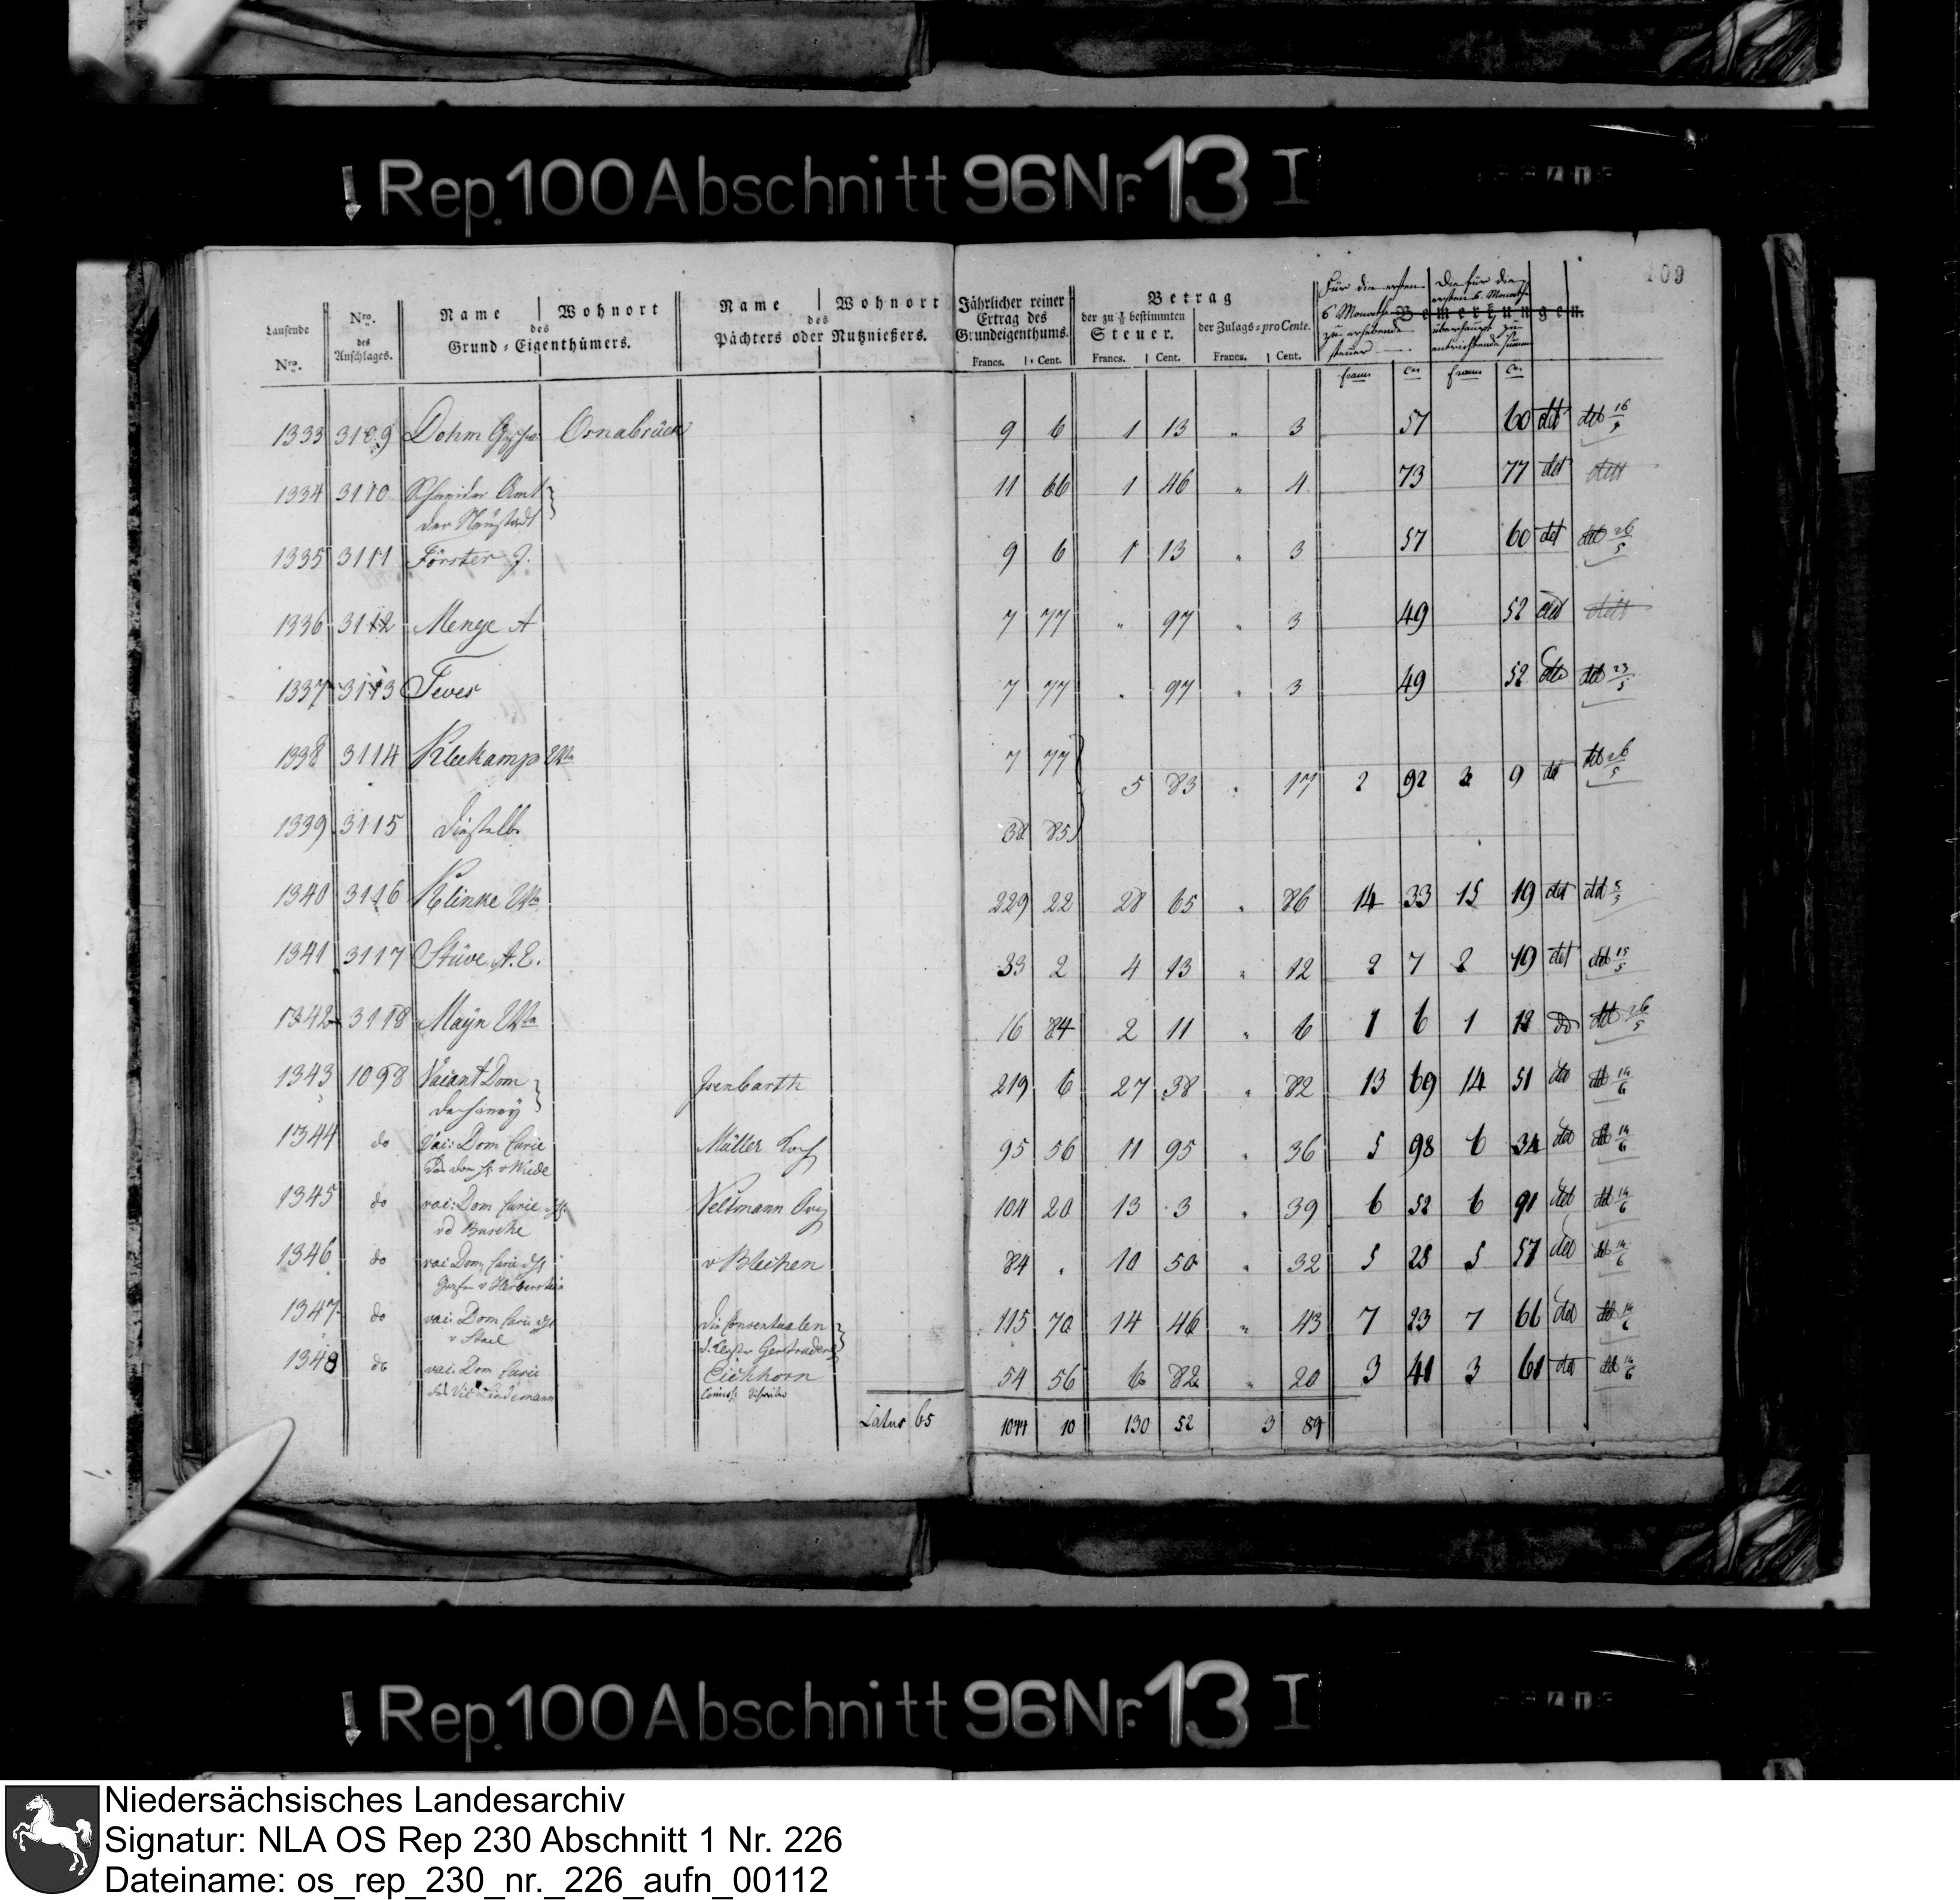 Rep. 100 Abschnitt 96 Nr. 13 I
109
Laufende Nro.
Nro. des Anschlages.
Name Wohnort
des
Grund-Eigenthümers.
Name Wohnort
des
Pächters oder Nutznießers.
Jährlicher reiner Ertrag des Grundeigenthums.
Francs. Cent.
Betrag
der zu 1/8 bestimmten Steuer.
Francs. Cent.
der Zulags-pro Cente.
Francs. Cent.
Bemerkungen.
Für die ersten 6 Monathe zu erhebende Steuer
Die für die ersten 6 Monathe überhaupt zu entrichtende Summe
1333 3109 Dohm Osnabrück 9 6 1 13 " 3 57 60 det det 16/5
1334 3110 Schneider Amt 11 66 1 46 " 4 73 77 det dett
der Neustadt
1335 3111 Förster J. 9 6 1 13 " 3 57 60 det det 26/5
1336 3112 Menge A 7 77 " 97 " 3 49 52 det dett
1337 3113 Teves 7 77 " 97 " 3 49 52 det det 23/5
1338 3114 Kleekamp Wwe 7 77 5 83 " 17 2 92 3 9 det det 26/5
1339 3115 Dieselbe 38 85
1340 3116 Klinke Wwe 229 22 28 65 " 86 14 33 15 19 det det 5/5
1341 3117 Stüve A. E. 33 2 4 13 " 12 2 7 2 19 det det 15/5
1342 3118 Mayn Wwe 16 84 2 11 " 6 1 6 1 12 do det 26/5
1343 1098 Vacant Dom Isenbarth 219 6 27 38 " 82 13 69 14 51 det det 14/6
Dechaney
1344 do vac: Dom Curie Müller 95 56 11 95 " 36 5 98 6 34 det det 14/6
1345 do vac: Dom Curie Veltmann 104 20 13 3 " 39 6 52 6 91 det det 14/6
vd Bussche
1346 do vac Dom Curie v Blechen 84 " 10 50 " 32 5 25 5 57 det det 14/6
Grafen v Herberstein
1347 do vac: Dom Curie die Conventualen 115 70 14 46 " 43 7 23 7 66 det det 14/6
v Stael d. Kloster Gertruden
1348 do vac: Dom Curie Eichhorn 54 56 6 82 " 20 3 41 3 61 det det 14/6
des Vic Lindemann
Latus 65 1044 10 130 52 3 89
Rep. 100 Abschnitt 96 Nr. 13 I
Niedersächsisches Landesarchiv
Signatur: NLA OS Rep 230 Abschnitt 1 Nr. 226
Dateiname: os_rep_230_nr._226_aufn_00112